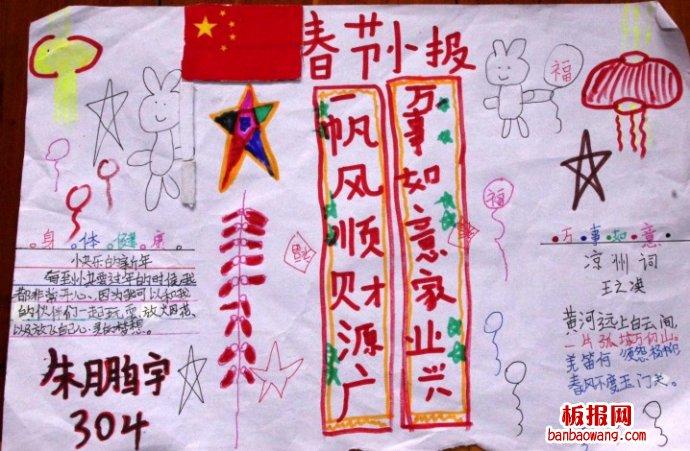 春节小报
一帆风顺财源广
万事如意家业兴
福
福
身体健康
快乐的新年
每到快要过年的时候我
都非常开心、因为我可以和我
的伙伴们一起玩耍、放烟花、
以及放飞自己心灵的梦想。
朱鹏宇
304
万事如意
凉州词
王之涣
黄河远上白云间,
一片孤城万仞山。
羌笛何须怨杨柳
春风不度玉门关。
板报网
banbaowang.com